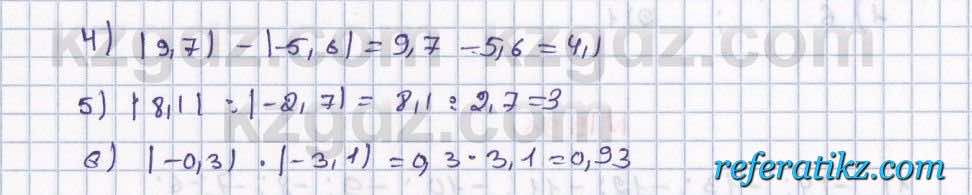 4) |9,7| - |-5,6| = 9,7 - 5,6 = 4,1
5) |8,1| : |-2,7| = 8,1 : 2,7 = 3
6) |-0,3| · |-3,1| = 0,3 · 3,1 = 0,93
kzgdz.com
kzgdz.com
referatikz.com